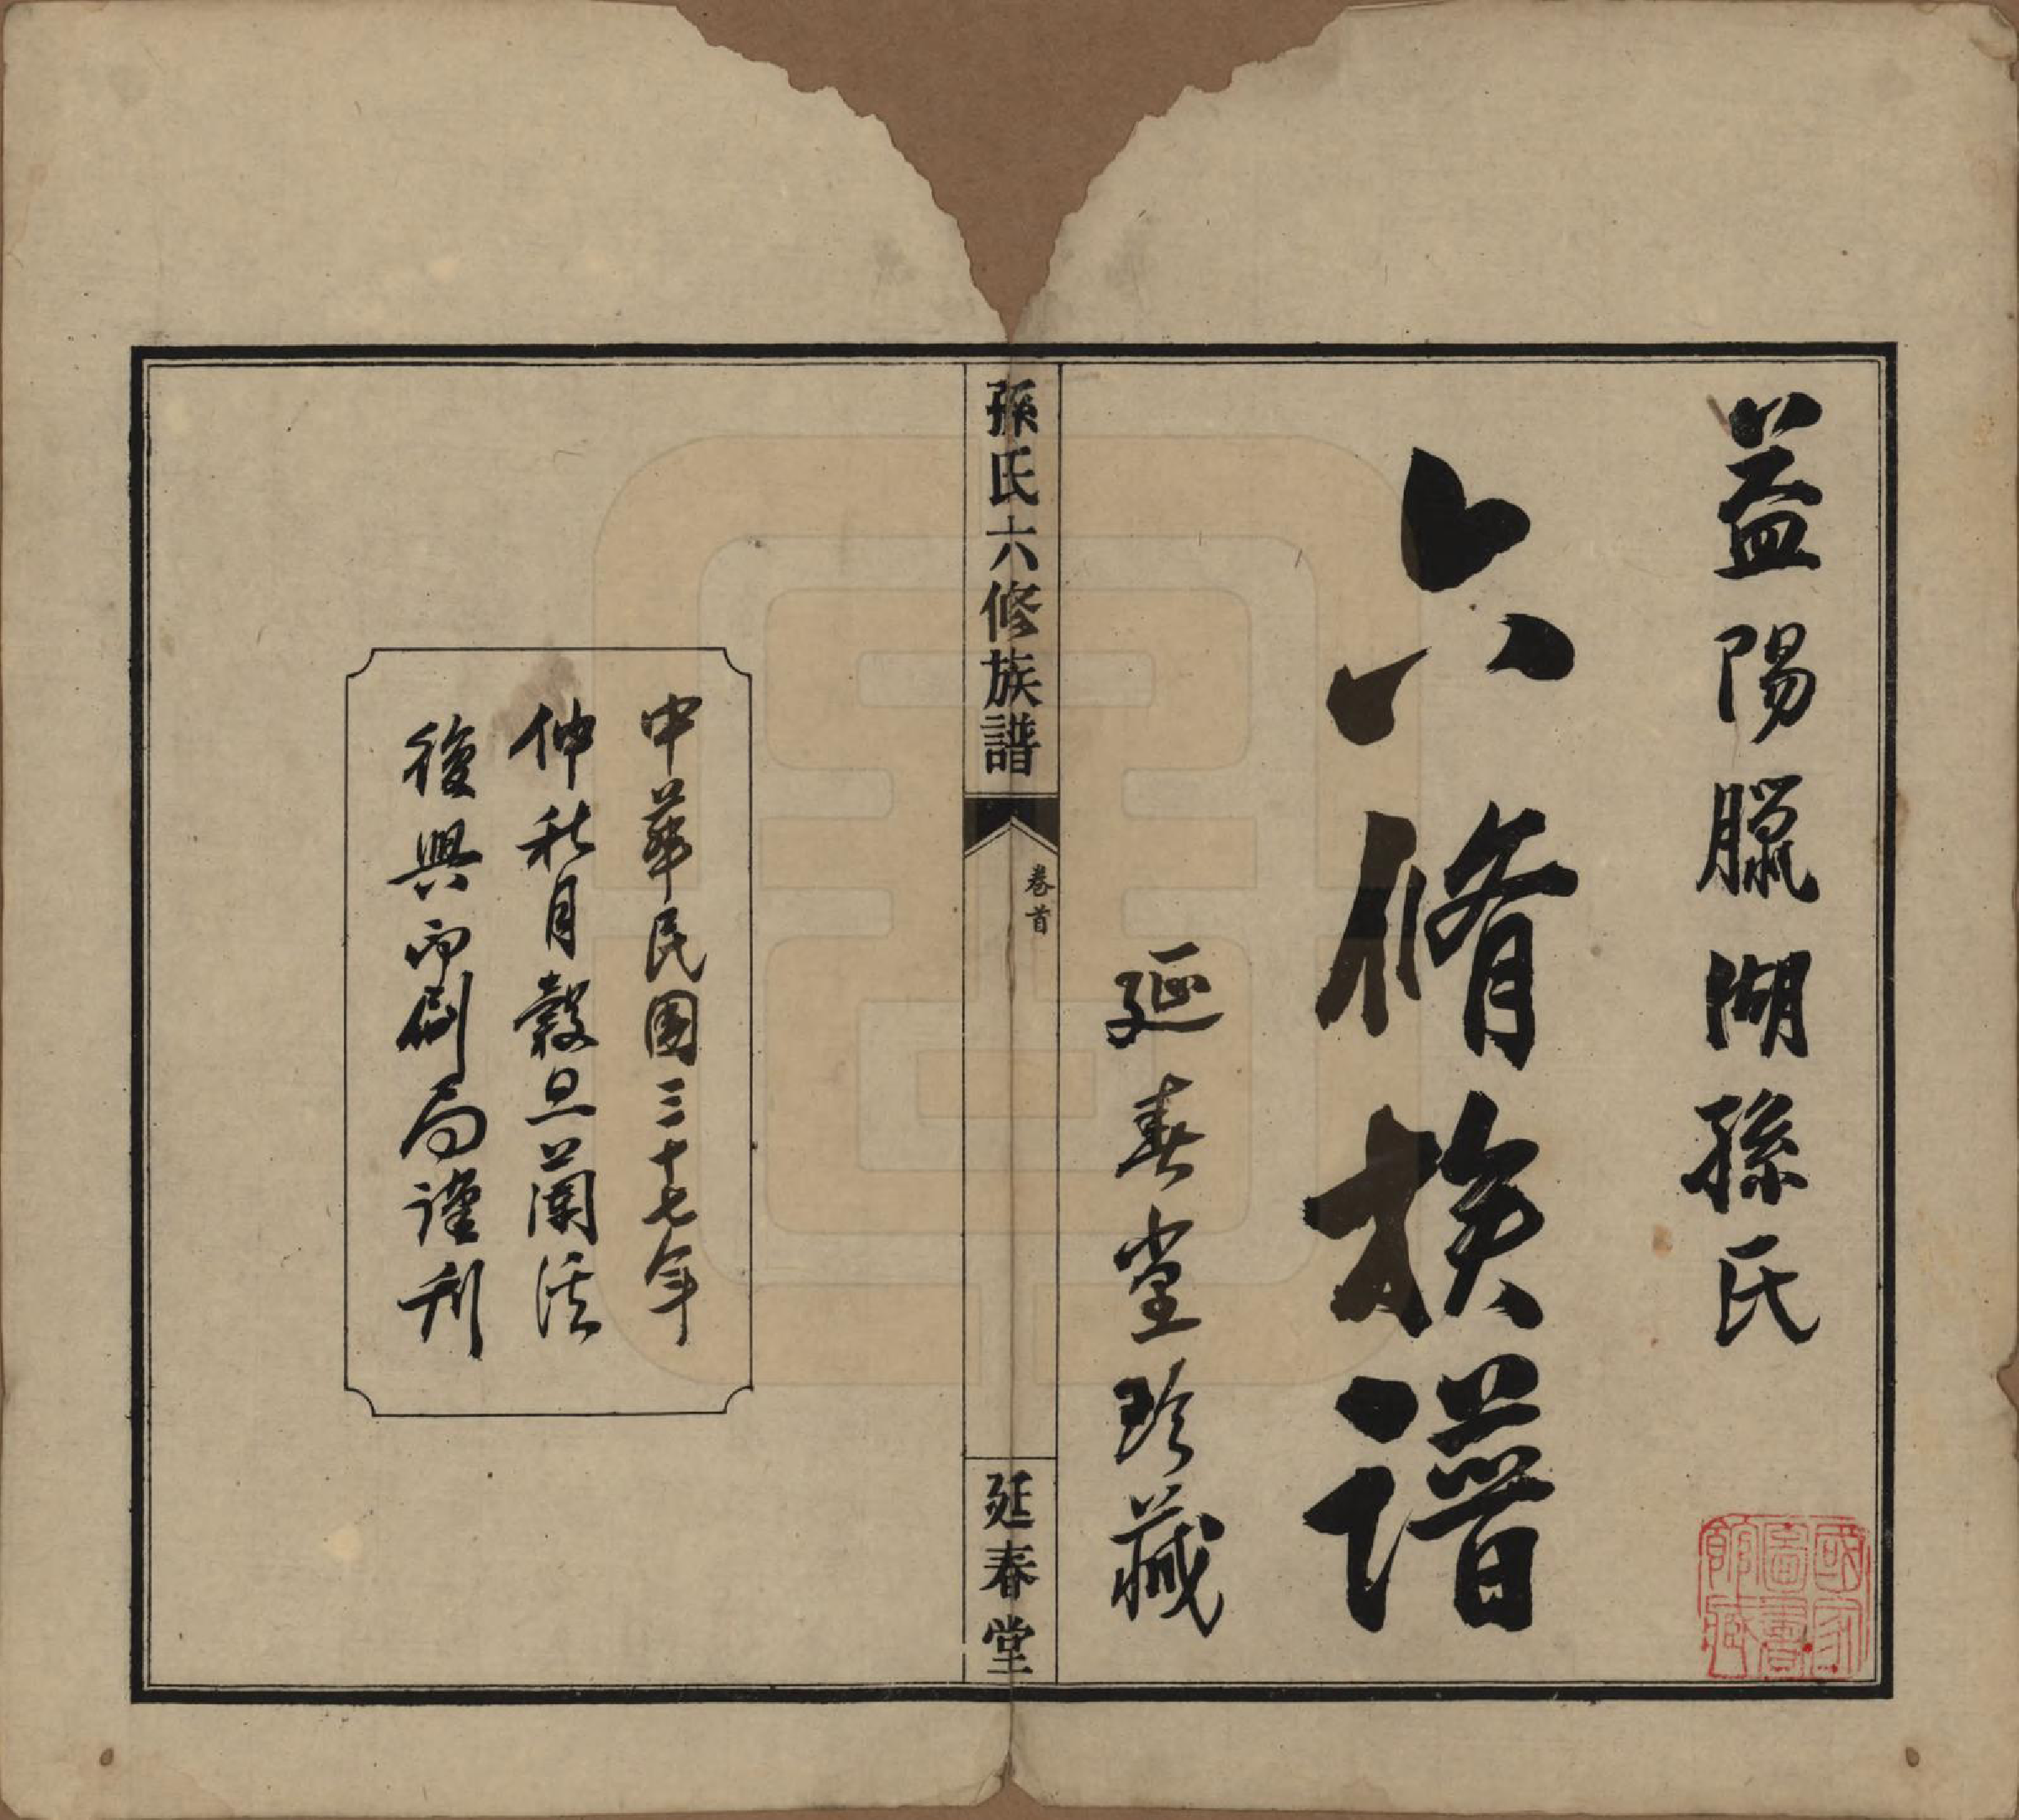 益陽臘湖孫氏
六脩族譜
延春堂珍藏
孫氏六修族譜
卷首
延春堂
中華民國三十七年
仲秋月穀旦蘭溪
復興印刷局謹刊
國家
圖書
館藏